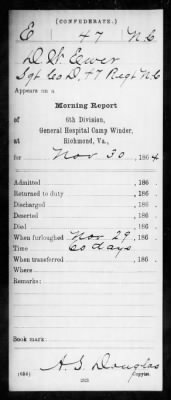 (CONFEDERATE.)
E 47 N.C
D. W. Ewer
Sgt Co D, 47 Regt N.C.
Appears on a
Morning Report
of
6th Division,
General Hospital Camp Winder,
at Richmond, Va.,
for Nov. 30, 1864
Admitted , 186 .
Returned to duty , 186 .
Discharged , 186 .
Deserted , 186 .
Died , 186 .
When furloughed Nov. 29, , 186 .
Time 60 days
When transferred , 186 .
Where
Remarks:
Book mark:
A. S. Douglas
(656) Copyist.